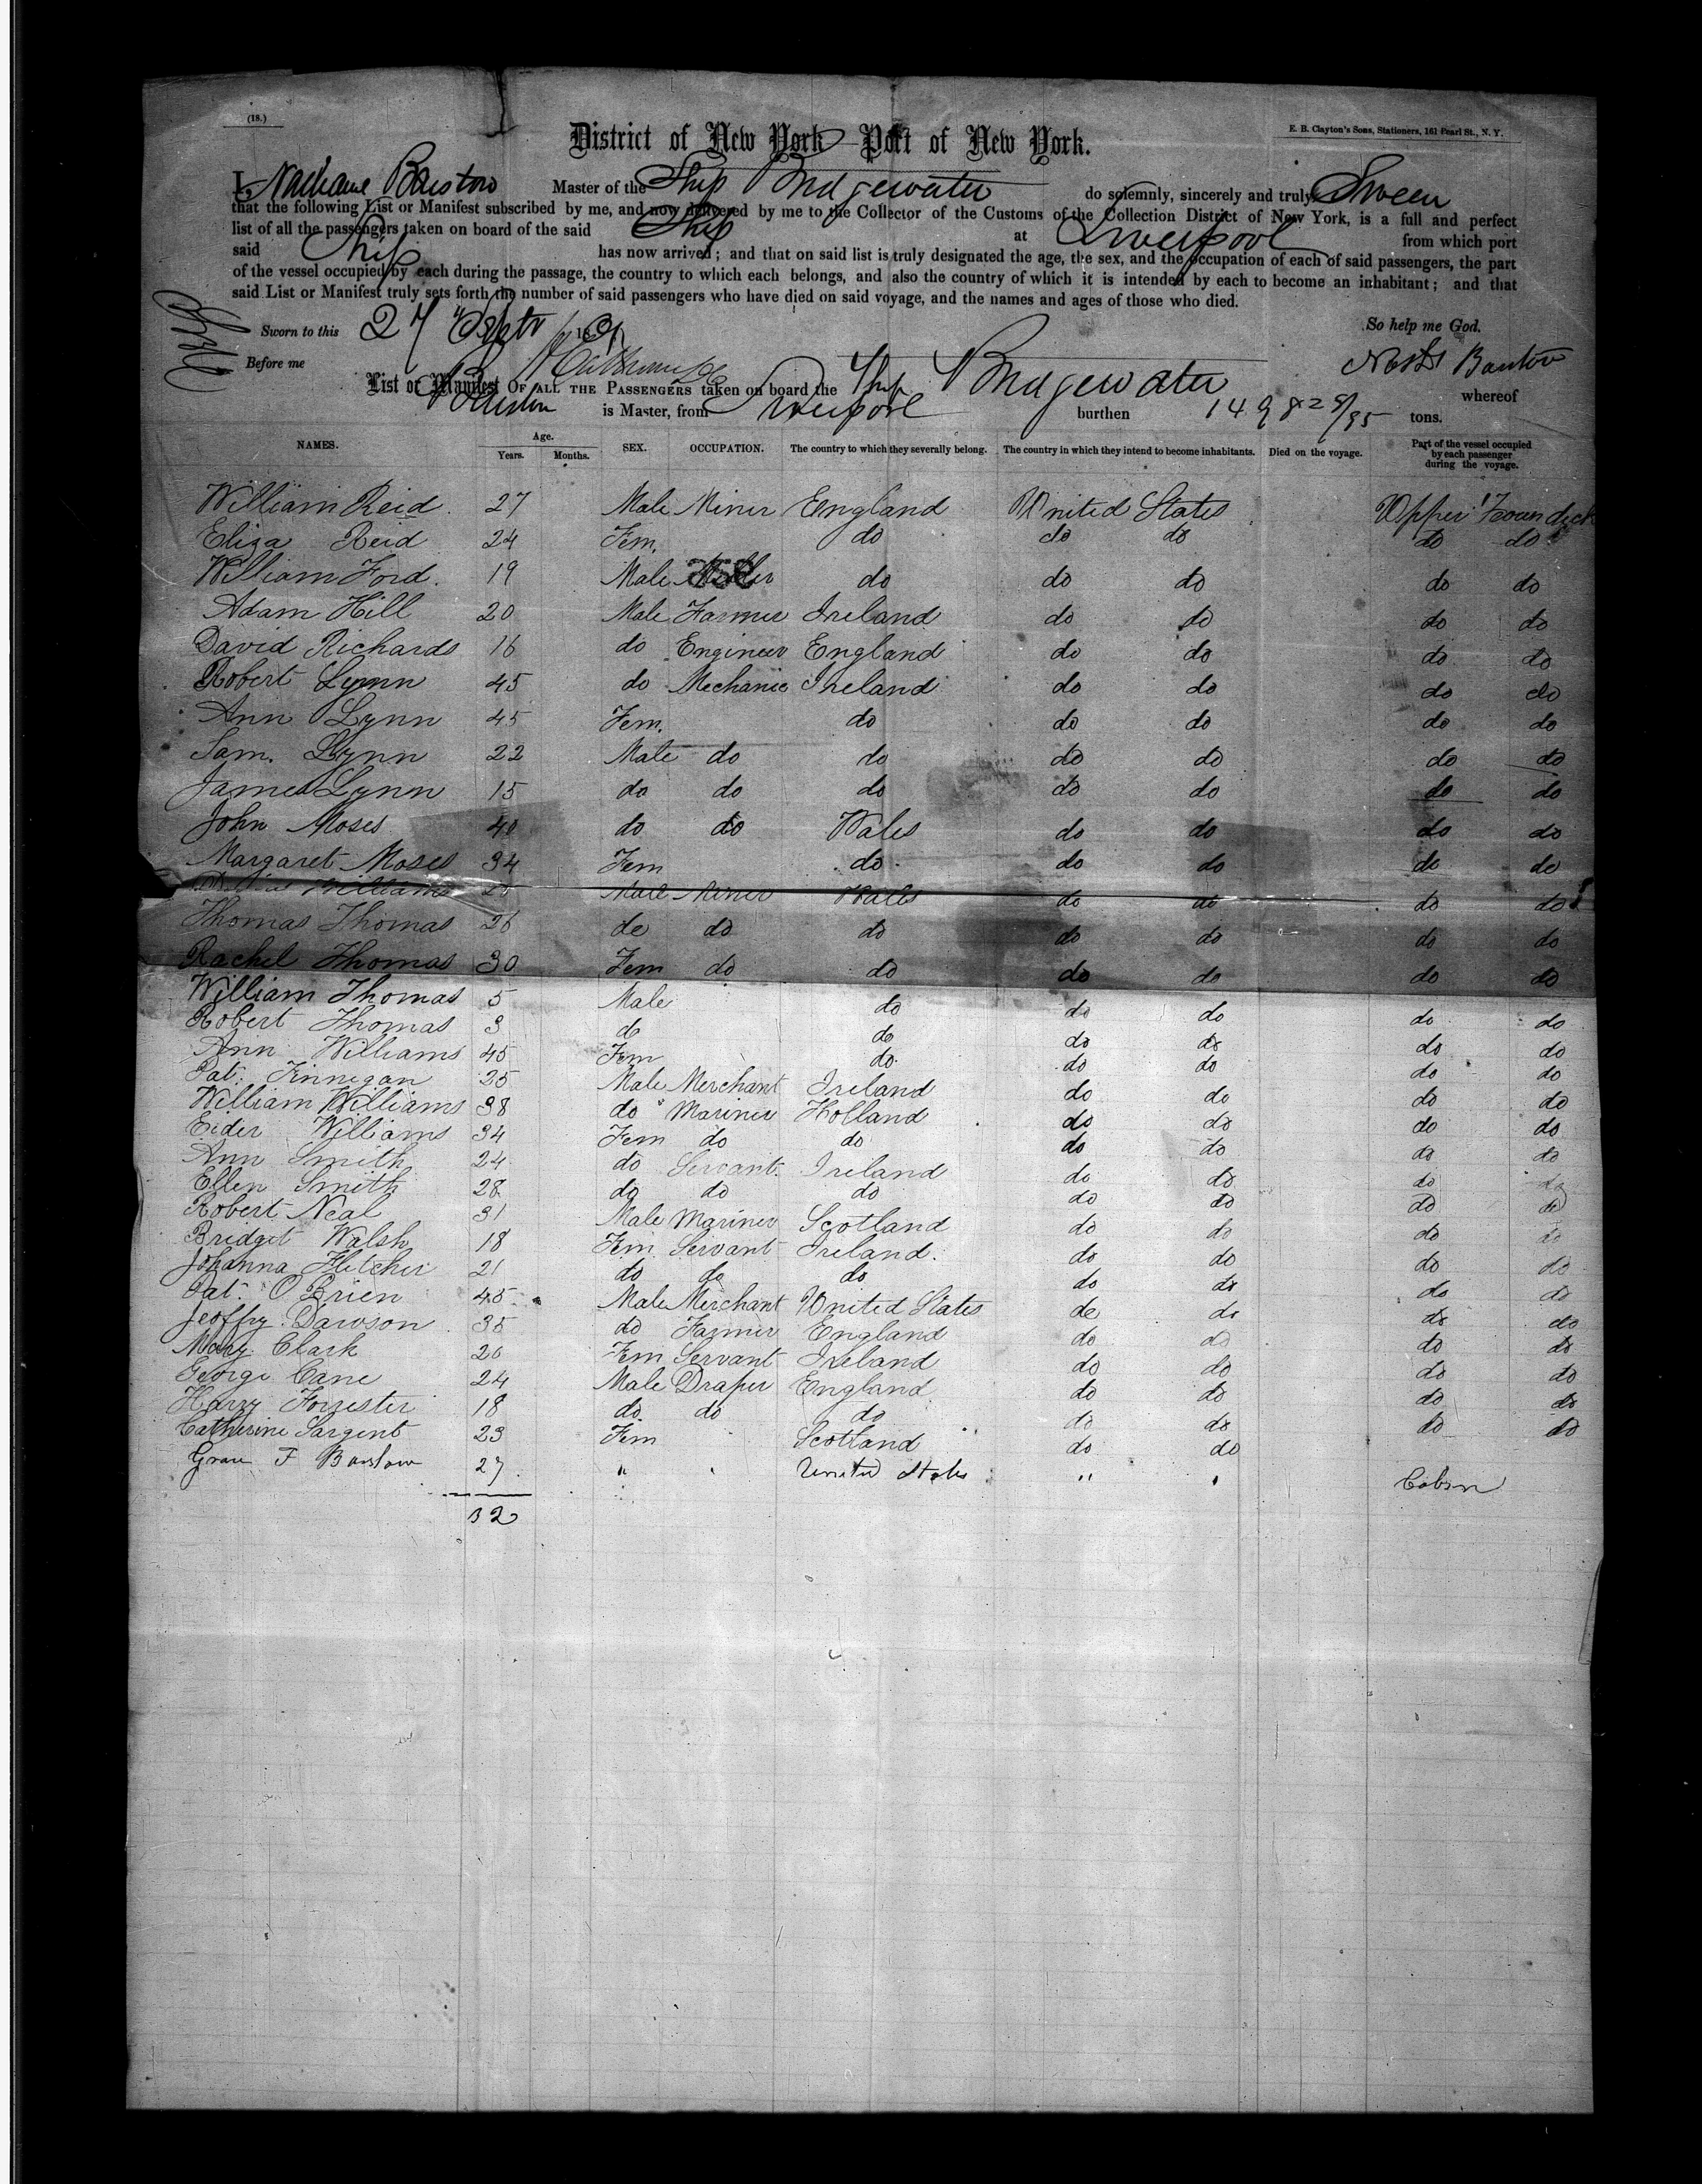 (18.)
E. B. Clayton's Sons, Stationers, 161 Pearl St., N. Y.
District of New York Port of New York.
I, Barstow Master of the Ship Bridgewater do solemnly, sincerely and truly, Swear
that the following List or Manifest subscribed by me, and now delivered by me to the Collector of the Customs of the Collection District of New York, is a full and perfect
list of all the passengers taken on board of the said Ship at Liverpool from which port
said Ship has now arrived; and that on said list is truly designated the age, the sex, and the occupation of each of said passengers, the part
of the vessel occupied by each during the passage, the country to which each belongs, and also the country of which it is intended by each to become an inhabitant; and that
said List or Manifest truly sets forth the number of said passengers who have died on said voyage, and the names and ages of those who died.
Sworn to this 27 Septr 18 So help me God.
Before me Barstow
List or Manifest OF ALL THE PASSENGERS taken on board the Ship Bridgewater whereof
Barstow is Master, from Liverpool burthen 1498 28/95 tons.
NAMES. Age. Years. Months. SEX. OCCUPATION. The country to which they severally belong. The country in which they intend to become inhabitants. Died on the voyage. Part of the vessel occupied by each passenger during the voyage.
William Reid 27 Male Miner England United States Upper
Eliza Reid 24 Fem. do do do do do
William Ford. 19 Male 358 do do do do do
Adam Hill 20 Male Farmer Ireland do do do do
David Richards 16 do Engineer England do do do do
Robert Lynn 45 do Mechanic Ireland do do do do
Ann Lynn 45 Fem. do do do do do
Sam. Lynn 22 Male do do do do do do
James Lynn 15 do do do do do do do
John Moses 40 do do Wales do do do do
Margaret Moses 34 Fem do do do do do
Williams Male Miner Wales do do do do
Thomas Thomas 26 do do do do do do do
Rachel Thomas 30 Fem do do do do do do
William Thomas 5 Male do do do do do
Robert Thomas 3 do do do do do do
Ann Williams 45 Fem do do do do do
Pat. Finnegan 25 Male Merchant Ireland do do do do
William Williams 38 do Mariner Holland do do do do
Williams 34 Fem do do do do do do
Ann Smith 24 do Servant Ireland do do do do
Ellen Smith 28 do do do do do do do
Robert Neal 31 Male Mariner Scotland do do do do
Bridget Walsh 18 Fem Servant Ireland. do do do do
Johanna Fletcher 21 do do do do do do do
Pat. O'Brien 45 Male Merchant United States do do do do
Jeoffry Dawson 35 do Farmer England do do do do
Mary Clark 20 Fem Servant Ireland do do do do
George Cane 24 Male Draper England do do do do
Harry Forrester 18 do do do do do do do
Catherine Sargent 23 Fem Scotland do do do do
F Barstow 27 " United States " " Cabin
32